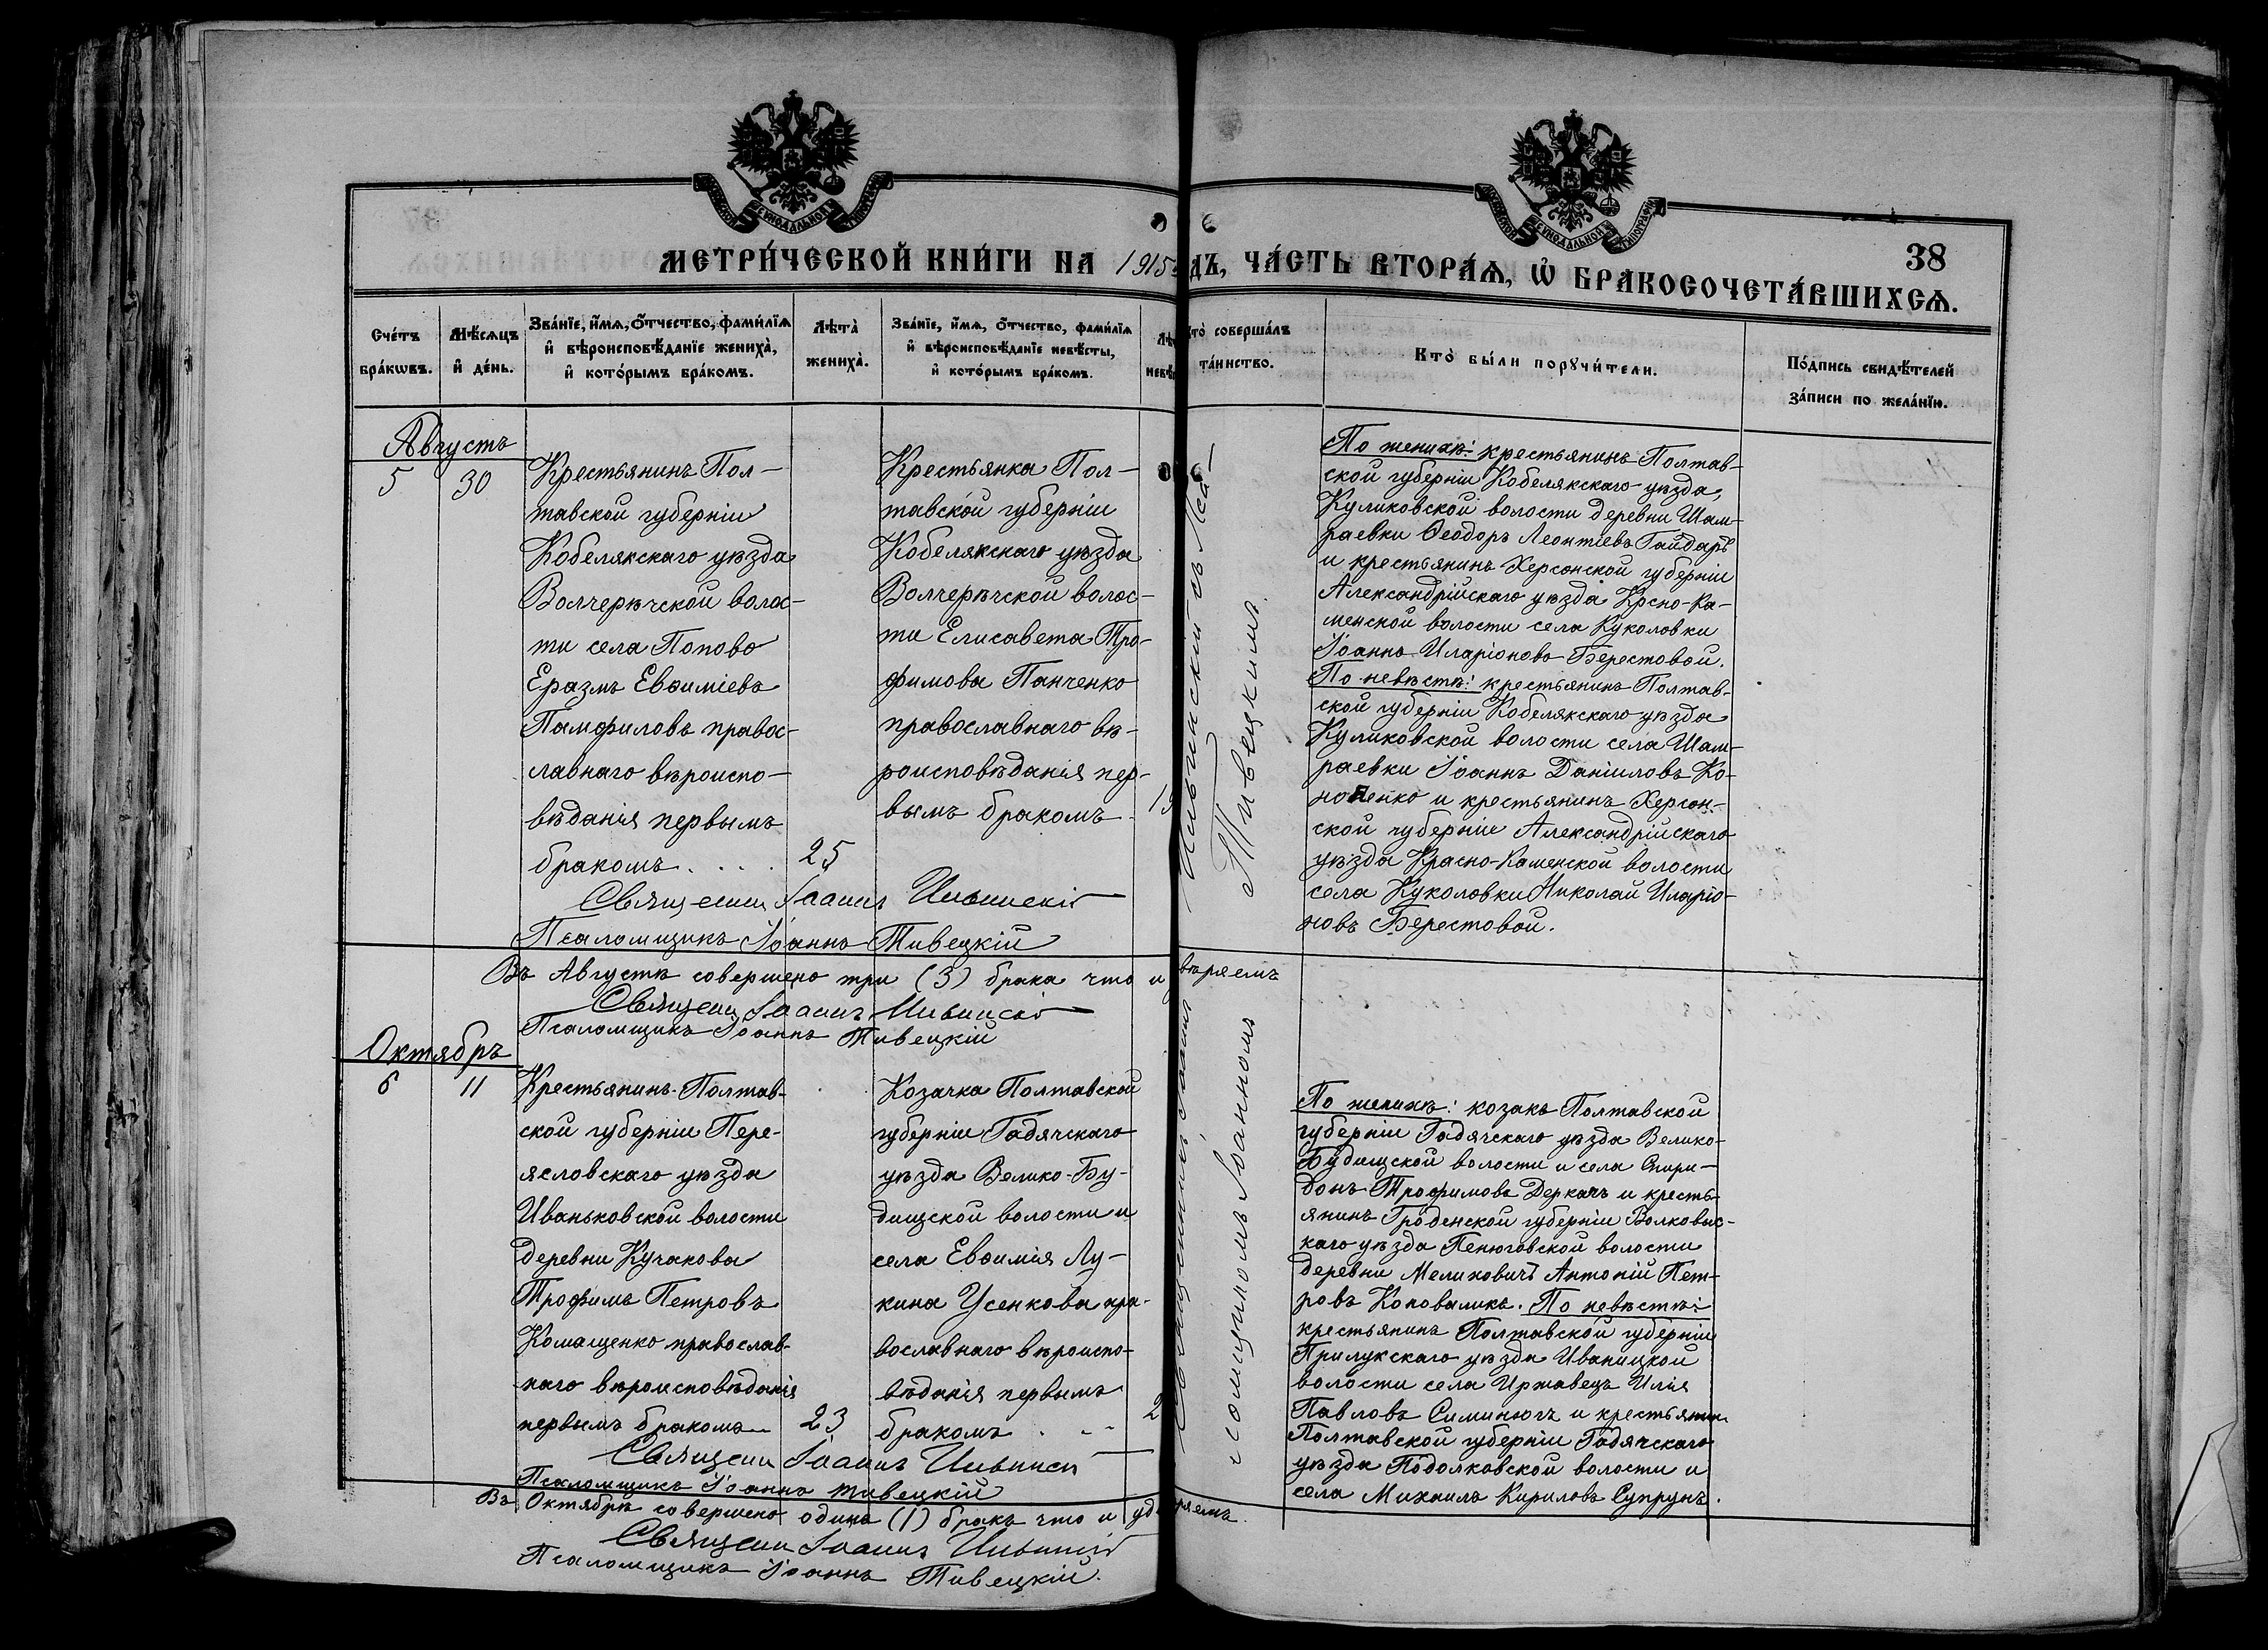 МЕТРИ́ЧЕСКОЙ КНИ́ГИ НА 1915
ДЪ, ЧА́СТЬ ВТОРА́Ѧ, Ѡ҆ БРАКОСОЧЕТА́ВШИХСѦ.
38
Сче́тъ бра́кѡвъ.
Мѣ́сѧцъ и҆ де́нь.
Зва́нїе, и҆́мѧ, ѻ҆́тчество, фами́лїѧ и҆ вѣроисповѣ́данїе жениха̀, и҆ кото́рымъ бра́комъ.
Лѣта̀ жениха̀.
Зва́нїе, и҆́мѧ, ѻ҆́тчество, фами́лїѧ и҆ вѣроисповѣ́данїе невѣ́сты, и҆ кото́рымъ бра́комъ.
Кто̀ соверша́лъ та́инство.
Кто̀ бы́ли порꙋчи́тели.
По́дпись свидѣ́телей за́писи по жела́нїю.
Августъ
5
30
Крестьянинъ Пол-
тавской губерніи
Кобелякскаго уѣзда
Волчерѣчской волос-
ти села Попово
Еразмъ Евѳиміевъ
Памфиловъ правос-
лавнаго вѣроиспо-
вѣданія первымъ
бракомъ . . . .
25
Крестьянка Пол-
тавской губерніи
Кобелякскаго уѣзда
Волчерѣчской волос-
ти Елисавета Тро-
фимова Панченко
православнаго вѣ-
роисповѣданія пер-
вымъ бракомъ
По женихѣ: крестьянинъ Полтав-
ской губерніи Кобелякскаго уѣзда,
Куликовской волости деревни Шам-
раевки Ѳеодоръ Леонтіевъ Гайдаръ
и крестьянинъ Херсонской губерніи
Александрійскаго уѣзда Крсно-Ка-
менской волости села Куколовки
Іоаннъ Иларіоновъ Берестовой.
По невѣстѣ: крестьянинъ Полтав-
ской губерніи Кобелякскаго уѣзда
Куликовской волости села Шам-
раевки Іоаннъ Даніиловъ Ко-
ноненко и крестьянинъ Херсон-
ской губерніи Александрійскаго
уѣзда Красно-Каменской волости
села Куколовки Николай Иларіо-
новъ Берестовой.
Священн Іоаннъ
Псаломщикъ Іоаннъ Тивецкій
Въ Августѣ совершено три (3) брака что и
вѣряемъ
Священн Іоаннъ
Псаломщикъ Іоаннъ Тивецкій
Октябрь
6
11
Крестьянинъ Полтав-
ской губерніи Пере-
ясловскаго уѣзда
Иваньковской волости
деревни Кучакова
Трофимъ Петровъ
Комащенко православ-
наго вѣроисповѣданія
первымъ бракомъ
23
Козачка Полтавской
губерніи Гадячскаго
уѣзда Велико-Бу-
дищской волости и
села Евѳимія Лу-
кина Усенкова пра-
вославнаго вѣроиспо-
вѣданія первымъ
бракомъ . . .
псаломщикомъ Іоанномъ
Тивецкимъ.
По женихѣ: козакъ Полтавской
губерніи Гадячскаго уѣзда Велико-
Будищской волости и села Спири-
донъ Трофимовъ Деркачъ и кресть-
янинъ Гроденской губерніи Волковыс-
каго уѣзда Пенюговской волости
деревни Меликовичъ Антоній Пет-
ровъ Коповаликъ. По невѣстѣ:
крестьянинъ Полтавской губерніи
Прилукскаго уѣзда Иваницкой
волости села Иржавецъ Илія
Павловъ Симинюгъ и крестьянин
Полтавской губерніи Гадячскаго
уѣзда Подолковской волости и
села Михаилъ Кириловъ Супрунъ.
Священн Іоаннъ
Псаломщикъ Іоаннъ Тивецкій
Въ Октябрѣ совершено одинъ (1) бракъ что и удо
ряемъ.
Священн Іоаннъ
Псаломщикъ Іоаннъ Тивецкій.